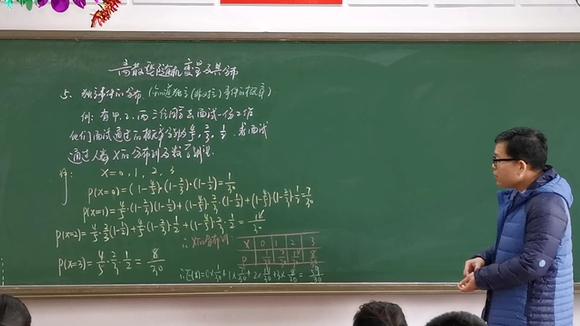 离散型随机变量及其分布
5. 独立事件的分布 (知道独立(非独立)事件的概率)
例: 有甲、乙、丙三位同学去面试一份工作
他们面试通过的概率分别为 4/5, 2/3, 1/2. 求面试
通过人数X的分布列及数学期望.
解: X=0, 1, 2, 3
P(X=0)=(1-4/5)·(1-2/3)·(1-1/2)=1/30
P(X=1)=4/5·(1-2/3)(1-1/2)+(1-4/5)·2/3·(1-1/2)+(1-4/5)(1-2/3)·1/2=7/30
P(X=2)=4/5·2/3(1-1/2)+4/5(1-2/3)·1/2+(1-4/5)·2/3·1/2=14/30
P(X=3)=4/5·2/3·1/2=8/30
∴X的分布列
X 0 1 2 3
P 1/30 7/30 14/30 8/30
∴E(X)=0×1/30+1×7/30+2×14/30+3×8/30=59/30